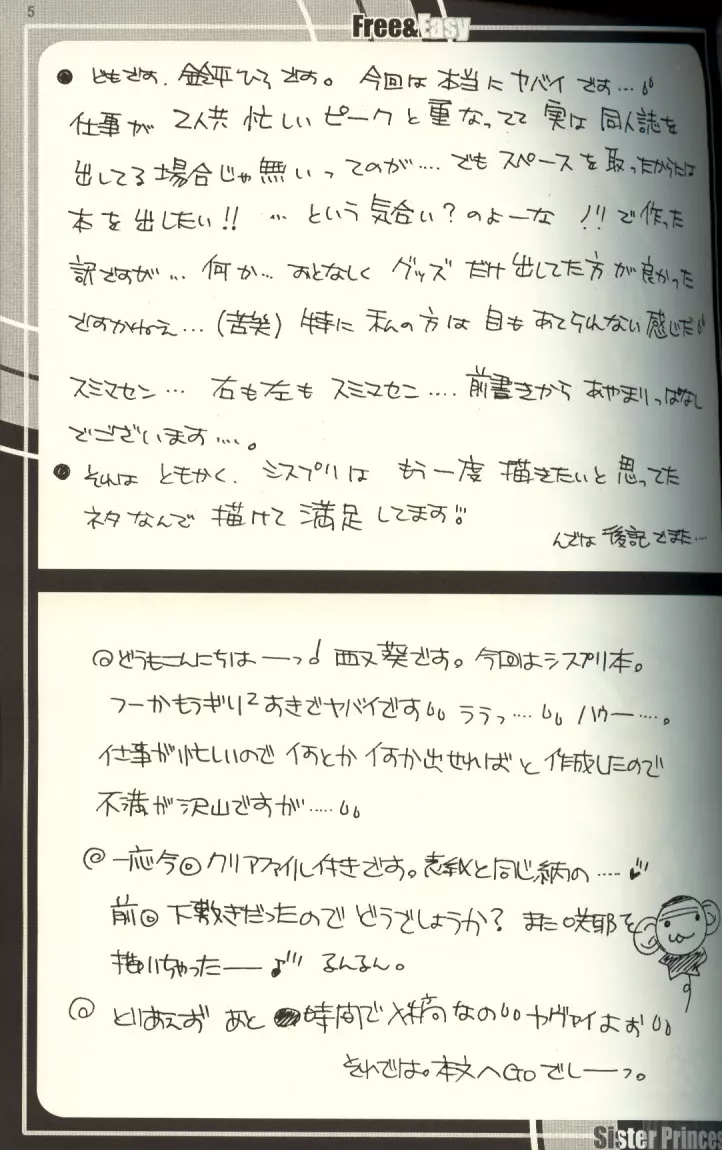 5
Free&Easy
● ども です. 鈴平ひろ です。 今回は 本当に ヤバイ です…
仕事が 2人共 忙しい ピーク と 重なってて 実は 同人誌を
出してる 場合じゃ 無い ってのが…. でも スペース を 取ったからには
本 を 出したい!! … という 気合い? のよーな ノリ で 作った
訳ですが… 何か… おとなしく グッズ だけ 出してた方 が 良かった
ですかねぇ…(苦笑) 特に 私の方 は 目も あてられない 感じだ
スミマセン… 右も左も スミマセン…. 前書きから あやまりっぱなし
でございます….。
● それは ともかく. シスプリは もう一度 描きたいと 思ってた
ネタ なんで 描けて 満足 してます!!
んでは 後記でまた…
@どうもこんにちは――っ♪ 西又 葵です。今回はシスプリ本。
つーかもうぎり2あきでヤバイです ううっ…. ハウー….。
仕事が忙しいので 何とか 何か出せれば と 作成したので
不満が沢山ですが…..
@ 一応今回クリアファイル付きです。表紙と同じ柄の….
前回 下敷きだったので どうでしょうか? また 咲耶を
描いちゃった――♪ るんるん。
@ とりあえず あと 時間で 入稿なの ヤヴァイよお
それでは。本文へGoでしーっ。
Sister Princes